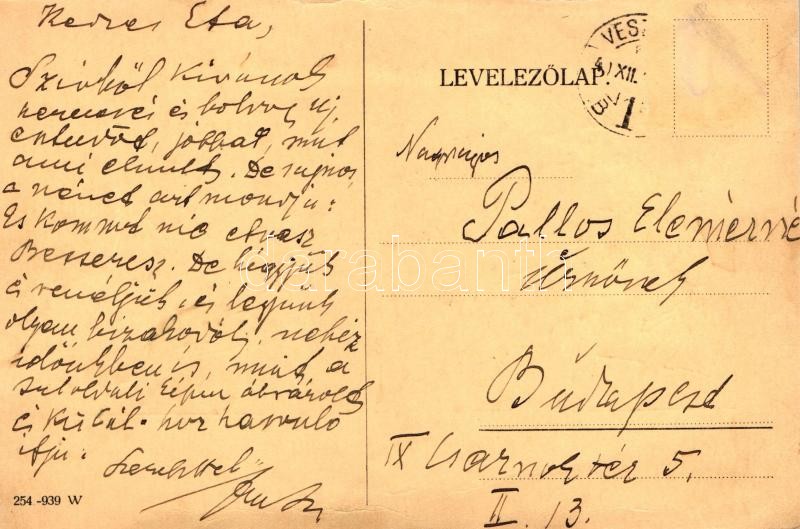 Kedves Eta,
Szivből kívánok
szerencsés és boldog új
esztendőt, jobbat, mint
ami elmult. De sajnos
a német azt mondja:
Es kommt nie etwas
Besseres. De higyjük
és reméljük, és legyünk
olyan bizakodók nehéz
időkben is, mint a
tuloldali képen ábrázolt
és hasonló
ifju.
Szeretettel
254 -939 W
LEVELEZŐLAP
VESZ
XII.
1
Nagyságos
Pallos Elemérné
Úrnőnek
Budapest
IX Csarnok tér 5.
II. 13.
darabanth